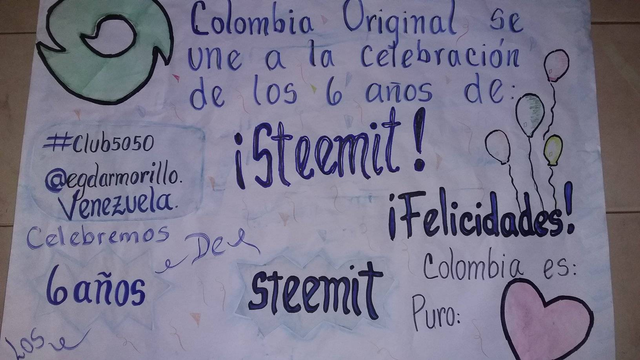 Colombia Original se
une a la celebración
de los 6 años de:
¡Steemit!
#Club5050
@egdarmorillo.
Venezuela.
¡Felicidades!
Celebremos
Los
6 años
De
steemit
Colombia es:
Puro: